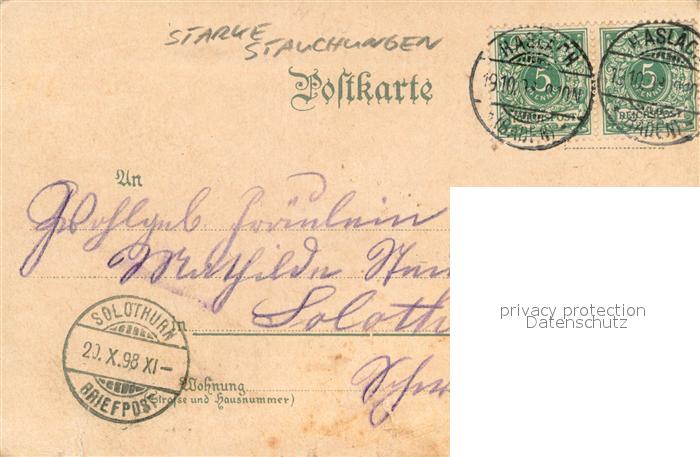 STARKE
STAUCHUNGEN
HASLACH
(BADEN)
5
PFENNIG
REICHSPOST
HASLACH
(BADEN)
5
REICHSPOST
Postkarte
An
Wohlgeb. Fräulein
Mathilde
Soloth
SOLOTHURN
20. X. 98 XI–
BRIEFPOST
in
Wohnung
(Strasse und Hausnummer)
Schw
privacy protection
Datenschutz